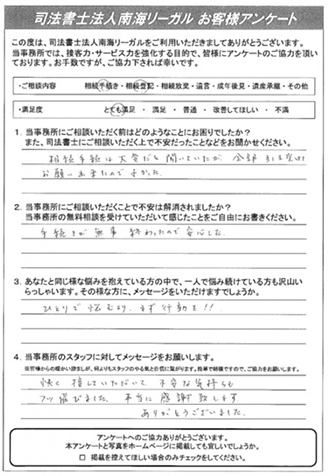 司法書士法人南海リーガル お客様アンケート
この度は、司法書士法人南海リーガルをご利用いただきましてありがとうございます。
当事務所では、接客力・サービス力を強化する目的で、皆様にアンケートのご協力を頂いております。お手数ですが、ご協力下されば幸いです。
・ご相談内容 相続手続き・相続登記・相続放棄・遺言・成年後見・遺産承継・その他
・満足度 とても満足・満足・普通・改善してほしい・不満
1. 当事務所にご相談いただく前はどのようなことにお困りでしたか？
また、司法書士にご相談いただく上で不安だったことなどをお聞かせください。
相続手続は大変だと聞いていたが 全部
お願い出来たので よかった。
2. 当事務所にご相談いただくことで不安は解消されましたか？
当事務所の無料相談を受けていただいて感じたことをご自由にお書きください。
手続きが無事 終わったので安心した。
3. あなたと同じ様な悩みを抱えている方の中で、一人で悩み続けている方も沢山いらっしゃいます。その様な方に、メッセージをいただけますでしょうか。
ひとりで悩むより、まず行動を!!
4. 当事務所のスタッフに対してメッセージをお願いします。
快く接していただいて 不安な気持ちも
フッ飛びました。本当に感謝致します
ありがとうございました。
アンケートへのご協力ありがとうございます。
本アンケートと写真をホームページに掲載しても宜しいでしょうか。
□ 掲載を控えてほしい場合のみチェックをしてください。